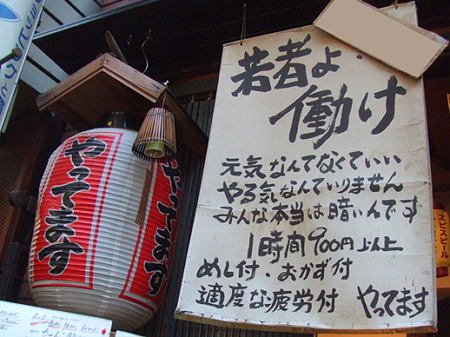 やってます
やってます
若者よ、
働け
元気なんてなくていい
やる気なんていりません
みんな本当は暗いんです
1時間900円以上
めし付・おかず付
適度な疲労付 やってます
ヱビスビール